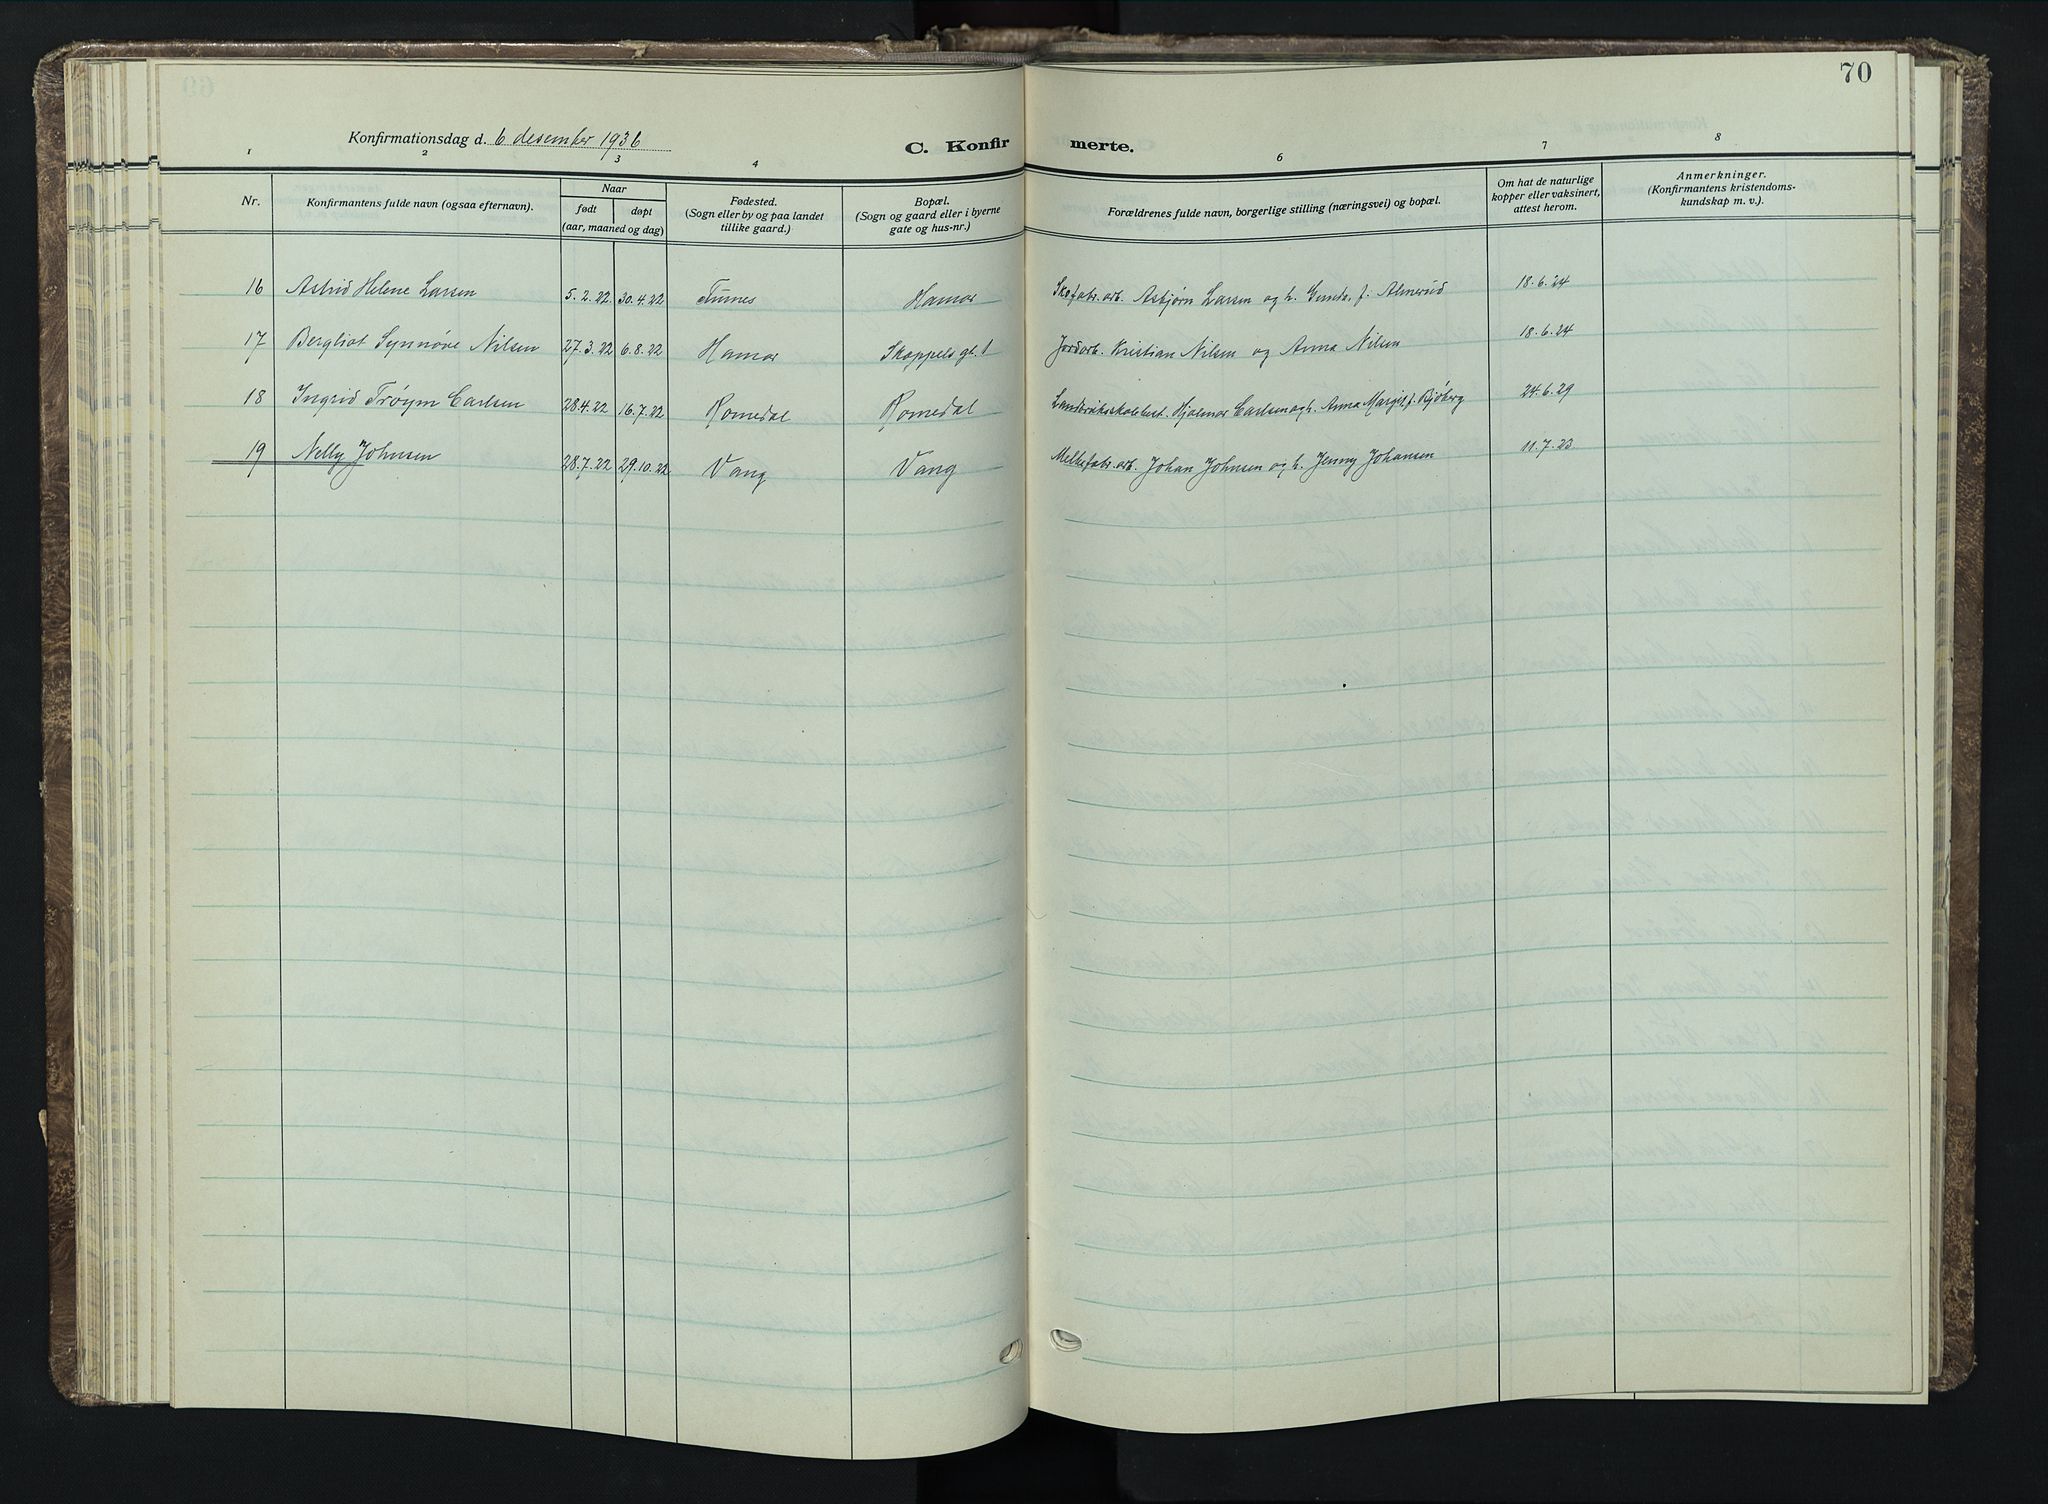 70
Konfirmationsdag d. 6 desember 1936
C. Konfirmerte.
1 2 3 4 6 7 8
Nr.
Konfirmantens fulde navn (ogsaa efternavn).
Naar
født døpt
(aar, maaned og dag)
Fødested.
(Sogn eller by og paa landet
tillike gaard.)
Bopæl.
(Sogn og gaard eller i byerne
gate og hus-nr.)
Forældrenes fulde navn, borgerlige stilling (næringsvei) og bopæl.
Om hat de naturlige
kopper eller vaksinert,
attest herom.
Anmerkninger.
(Konfirmantens kristendoms-
kundskap m. v.).
16 Astrid Helene Larsen 5.2.22 30.4.22 Furnes Hamar Skofabr.arb. Asbjørn Larsen og h. f. Almerud 18.6.24
17 Bergliot Synnøve Nilsen 27.3.22 6.8.22 Hamar Skappels gt. 1 Jordarb. Kristian Nilsen og Anna Nilsen 18.6.24
18 Ingrid Frøym Carlsen 28.4.22 16.7.22 Romedal Romedal Hjalmar Carlsen og h. Anna Margit f. Bjøberg 24.6.29
19 Nelly Johnsen 28.7.22 29.10.22 Vang Vang Melkefabr.arb. Johan Johnsen og h. Jenny Johansen 11.7.23